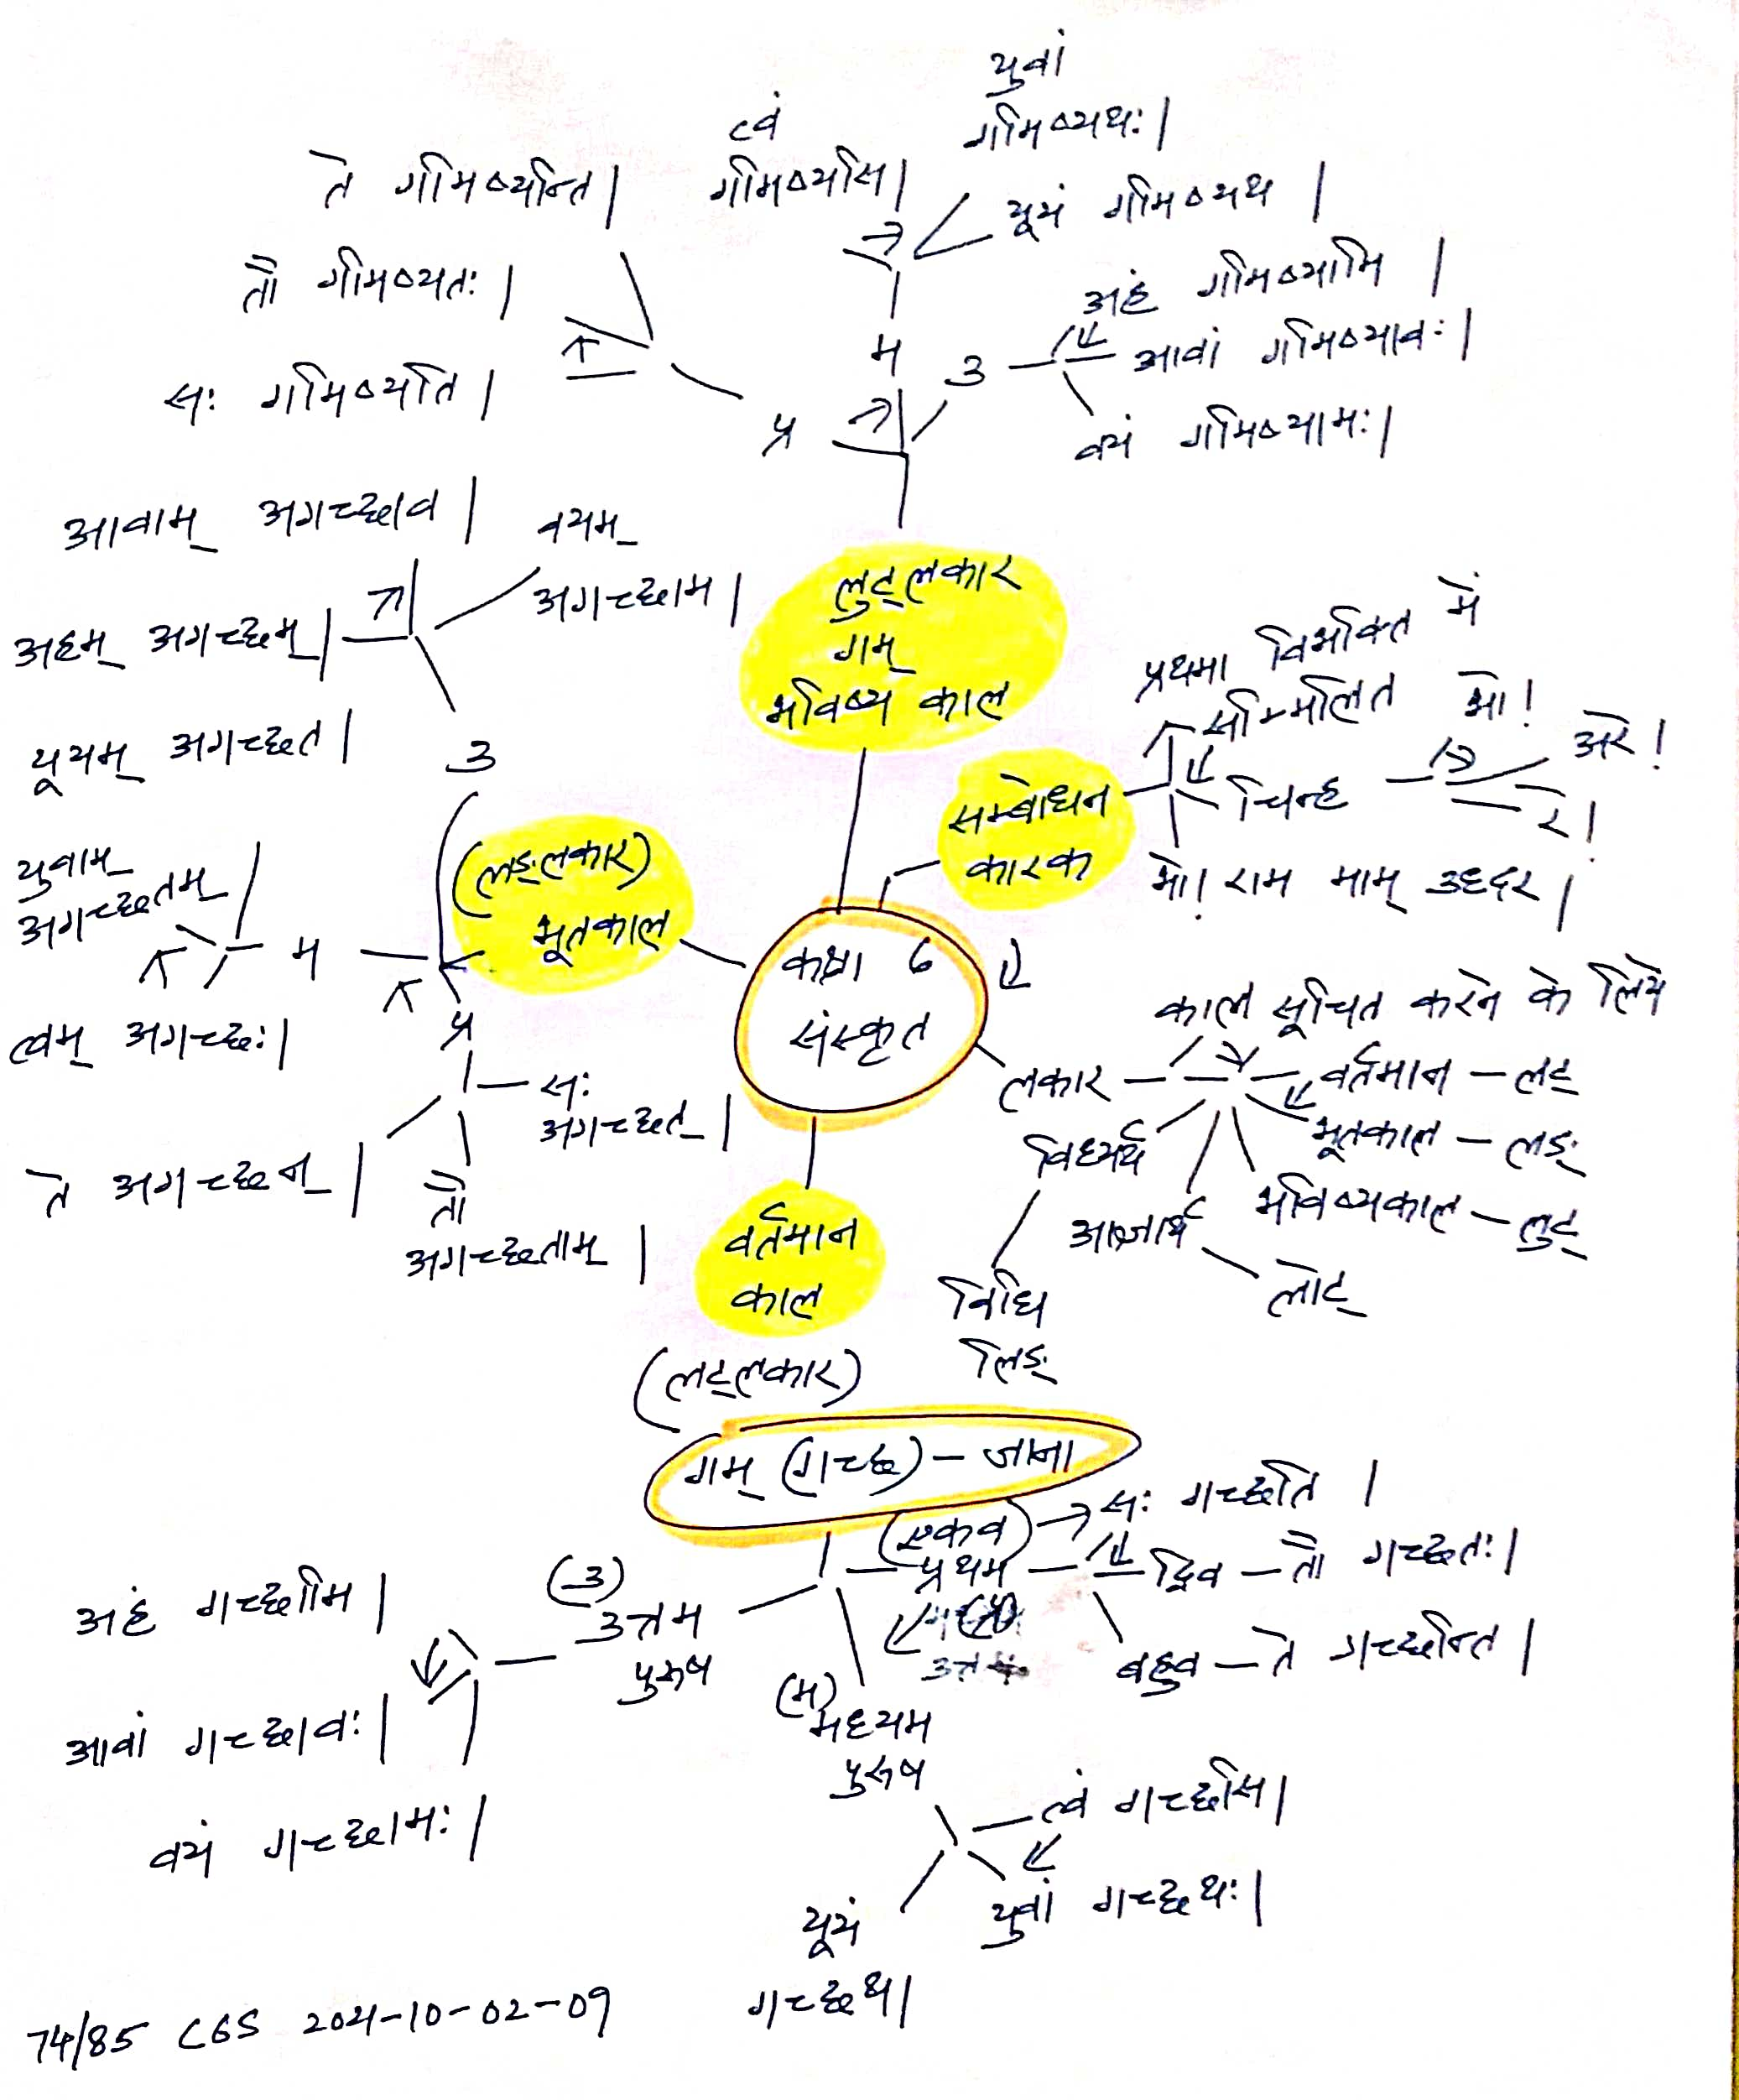 युवां
गमिष्यथः|
त्वं
गमिष्यसि|
यूयं गमिष्यथ |
ते गमिष्यन्ति|
तौ गमिष्यतः |
सः गमिष्यति |
म
प्र
उ
अहं गमिष्यामि |
आवां गमिष्यावः|
वयं गमिष्यामः|
लुट्लकार
गम्
भविष्य काल
आवाम् अगच्छाव |
वयम्
अगच्छाम |
अहम् अगच्छम् |
उ
यूयम् अगच्छत |
युवाम्
अगच्छतम् |
म
त्वम् अगच्छः|
(लङ्लकार)
भूतकाल
प्र
सः
अगच्छत् |
तौ
अगच्छताम् |
ते अगच्छन् |
सम्बोधन
कारक
प्रथमा विभक्ति में
सम्मिलित
चिन्ह
भो !
अरे !
रे !
भो! राम माम् उद्दर |
कक्षा 6
संस्कृत
लकार
काल सूचित करने के लिये
वर्तमान - लट्
भूतकाल - लङ्
भविष्यकाल - लुट्
आज्ञार्थ
लोट्
विध्यर्थ
विधि
लिङ्
वर्तमान
काल
(लट्लकार)
गम् (गच्छ) - जाना
(एकव)
सः गच्छति |
प्रथम
द्विव - तौ गच्छतः|
बहुव - ते गच्छन्ति |
(उ)
उत्तम
पुरुष
अहं गच्छामि |
आवां गच्छावः|
वयं गच्छामः|
(म)
मध्यम
पुरुष
त्वं गच्छसि|
युवां गच्छथः|
यूयं
गच्छथ|
74/85 C6S 2021-10-02-09